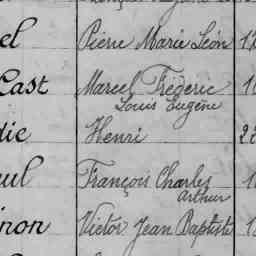 el Pierre Marie Léon
Cast Marcel Fréderic
Louis Eugène
die Henri
ul François Charles
Arthur
non Victor Jean Baptiste